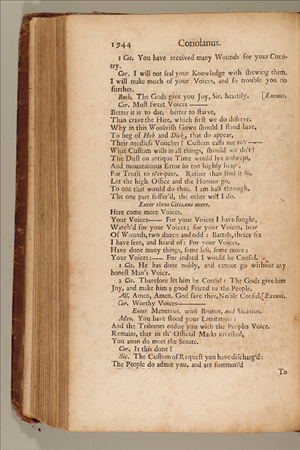 1944 Coriolanus.
1 Cit. You have received many Wounds for your Coun-
try.
Cor. I will not seal your Knowledge with shewing them.
I will make much of your Voices, and so trouble you no
further.
Both. The Gods give you Joy, Sir, heartily. [Exeunt.
Cor. Most sweet Voices ——
Better it is to die, better to starve,
Than crave the Hire, which first we do deserve.
Why in this Woolvish Gown should I stand here,
To beg of Hob and Dick, that do appear,
Their needless Voucher? Custom calls me to't——
What Custom wills in all things, should we do't?
The Dust on antique Time would lye unswept,
And mountainous Error be too highly heap'd,
For Truth to o'er-peer. Rather than fool it so,
Let the high Office and the Honour go,
To one that would do thus. I am half through,
The one part suffer'd, the other will I do.
Enter three Citizens more.
Here come more Voices.
Your Voices—— For your Voices I have fought,
Watch'd for your Voices; for your Voices, bear
Of Wounds, two dozen and odd: Battels, thrice six
I have seen, and heard of: For your Voices,
Have done many things, some less, some more:
Your Voices:— For indeed I would be Consul.
1 Cit. He has done nobly, and cannot go without any
honest Man's Voice.
2 Cit. Therefore let him be Consul: The Gods give him
Joy, and make him a good Friend to the People.
All. Amen, Amen. God save thee, Noble Consul. [Exeunt.
Cor. Worthy Voices——
Enter Menenius, with Brutus, and Sicinius.
Men. You have stood your Limitation:
And the Tribunes endue you with the Peoples Voice.
Remains, that in th' Official Marks invested,
You anon do meet the Senate.
Cor. Is this done?
Sic. The Custom of Request you have discharg'd:
The People do admit you, and are summon'd
To